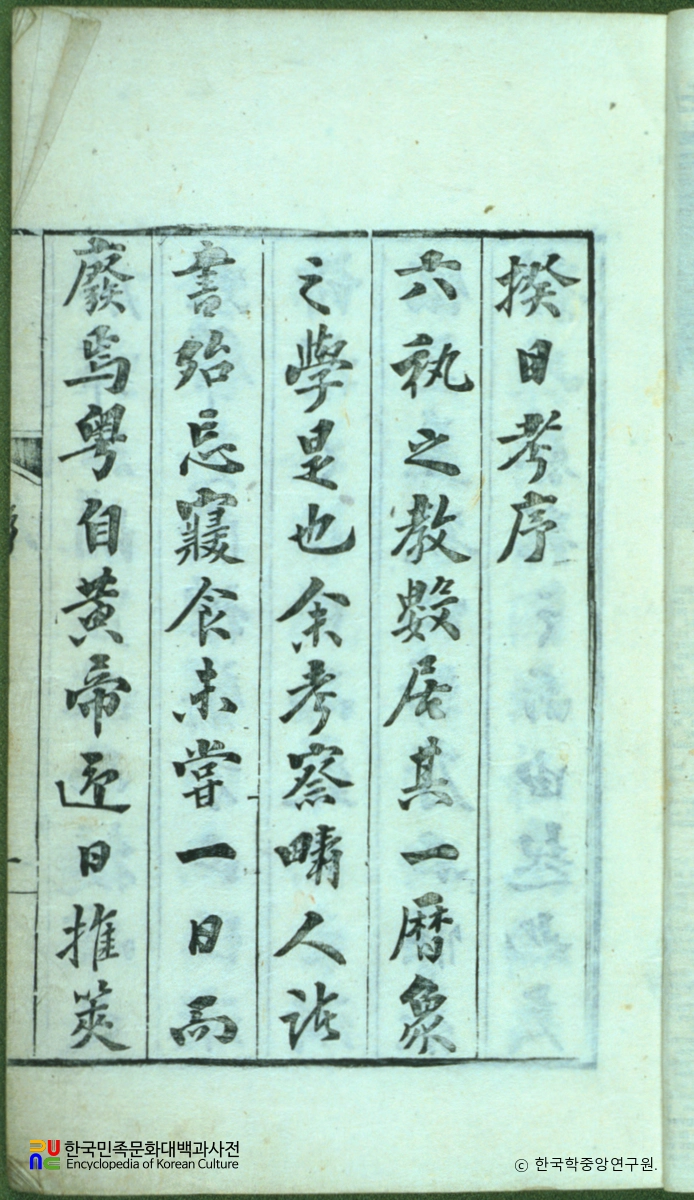 揆日考序
六秇之教數居其一暦象
之學是也余考察疇人諸
書殆忘寢食未甞一日而
廢焉粤自黄帝迎日推筴
한국민족문화대백과사전
Encyclopedia of Korean Culture
ⓒ 한국학중앙연구원.